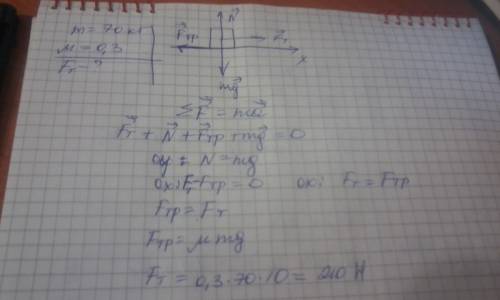 m = 70 кг
μ = 0,3
Fт = ?
F⃗тр
N⃗
x
mg⃗
ΣF⃗ = ma⃗
F⃗т + N⃗ + F⃗тр + mg⃗ = 0
oy: N = mg
ox: Fт - Fтр = 0 ox: Fт = Fтр
Fтр = Fт
Fтр = μmg
Fт = 0,3 · 70 · 10 = 210 Н